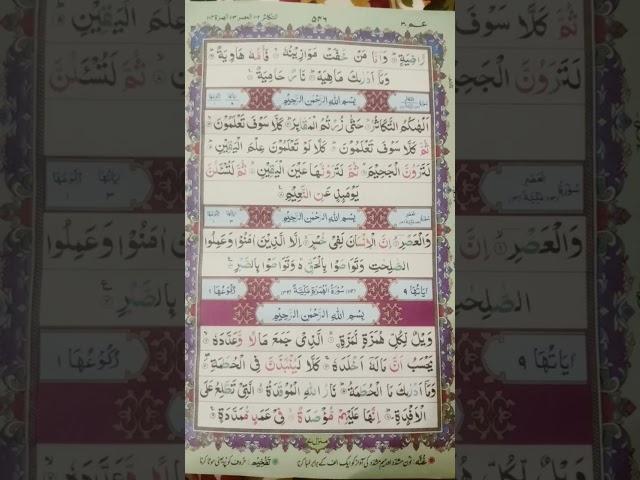 عـم ٣٠
٥٢٦
رَّاضِيَةٍ ۙ وَاَمَّا مَنْ خَفَّتْ مَوَازِيْنُهٗ ۙ فَاُمُّهٗ هَاوِيَةٌ ؕ
وَمَاۤ اَدْرٰىكَ مَاهِيَهْ ؕ نَارٌ حَامِيَةٌ
بِسْمِ اللّٰهِ الرَّحْمٰنِ الرَّحِيْمِ
اَلْهٰىكُمُ التَّكَاثُرُ ۙ حَتّٰى زُرْتُمُ الْمَقَابِرَ ؕ كَلَّا سَوْفَ تَعْلَمُوْنَ ۙ
ثُمَّ كَلَّا سَوْفَ تَعْلَمُوْنَ ؕ كَلَّا لَوْ تَعْلَمُوْنَ عِلْمَ الْيَقِيْنِ ؕ
لَتَرَوُنَّ الْجَحِيْمَ ۙ ثُمَّ لَتَرَوُنَّهَا عَيْنَ الْيَقِيْنِ ۙ ثُمَّ لَتُسْـَٔلُنَّ
يَوْمَىِٕذٍ عَنِ النَّعِيْمِ
بِسْمِ اللّٰهِ الرَّحْمٰنِ الرَّحِيْمِ
وَالْعَصْرِ ۙ اِنَّ الْاِنْسَانَ لَفِيْ خُسْرٍ ۙ اِلَّا الَّذِيْنَ اٰمَنُوْا وَعَمِلُوا
الصّٰلِحٰتِ وَتَوَاصَوْا بِالْحَقِّ ۙ وَتَوَاصَوْا بِالصَّبْرِ
اٰيَاتُهَا ٩ سُوْرَةُ الْهُمَزَةِ مَكِّيَّةٌ رُكُوْعُهَا ١
بِسْمِ اللّٰهِ الرَّحْمٰنِ الرَّحِيْمِ
وَيْلٌ لِّكُلِّ هُمَزَةٍ لُّمَزَةٍ ۙ الَّذِيْ جَمَعَ مَالًا وَّعَدَّدَهٗ ۙ
يَحْسَبُ اَنَّ مَالَهٗۤ اَخْلَدَهٗ ۚ كَلَّا لَيُنْۢبَذَنَّ فِي الْحُطَمَةِ ۖ
وَمَاۤ اَدْرٰىكَ مَا الْحُطَمَةُ ؕ نَارُ اللّٰهِ الْمُوْقَدَةُ ۙ الَّتِيْ تَطَّلِعُ عَلَى
الْاَفْـِٕدَةِ ؕ اِنَّهَا عَلَيْهِمْ مُّؤْصَدَةٌ ۙ فِيْ عَمَدٍ مُّمَدَّدَةٍ
منزل ٧